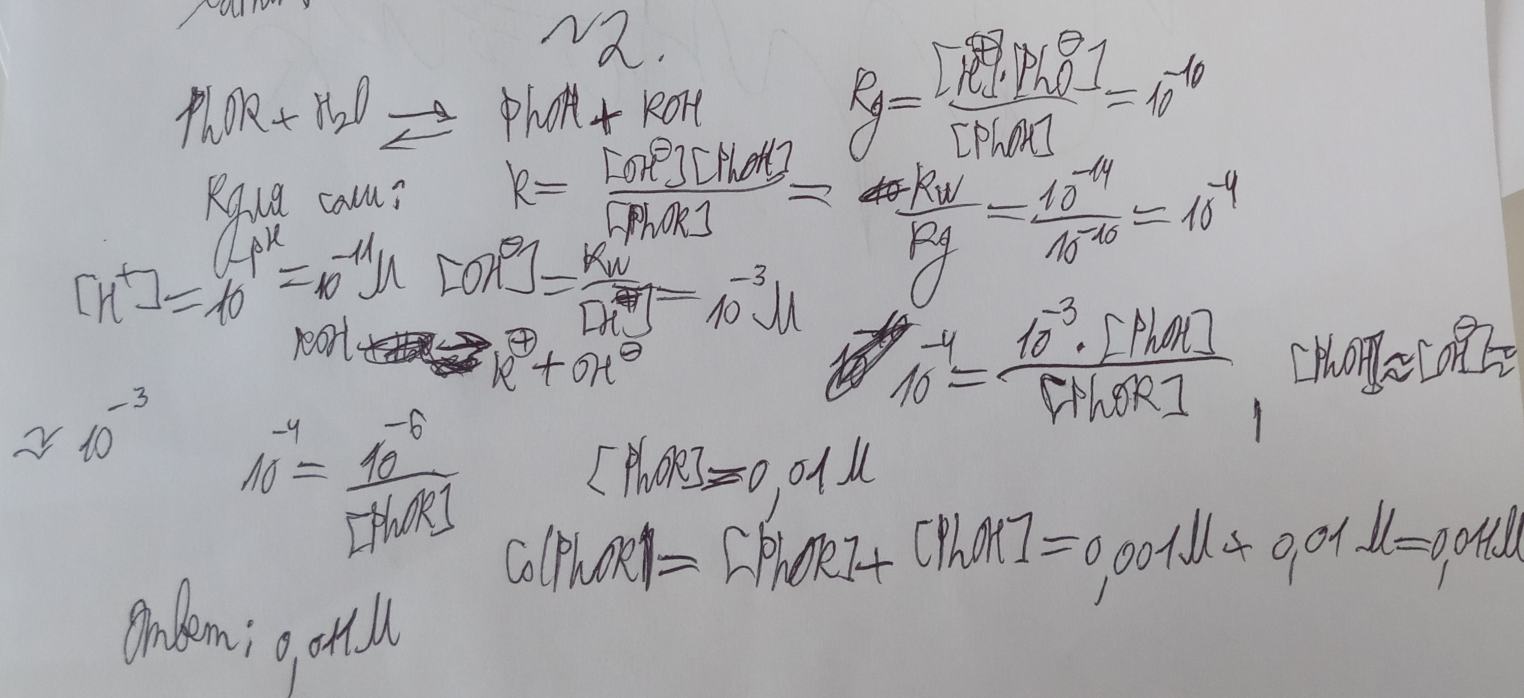 N2.
PhOK + H2O ⇌ PhOH + KOH
Kд = [H⊕]·[PhO⊖] / [PhOH] = 10^-10
K для соли: K = [OH⊖][PhOH] / [PhOK] = Kw / Kд = 10^-14 / 10^-10 = 10^-4
[H+] = 10^-pH = 10^-11 M [OH⊖] = Kw / [H⊕] = 10^-3 M
KOH → K⊕ + OH⊖
10^-4 = 10^-3 · [PhOH] / [PhOK] , [PhOH] ≈ [OH⊖] ≈
≈ 10^-3
10^-4 = 10^-6 / [PhOK] [PhOK] = 0,01 M
C0(PhOK) = [PhOK] + [PhOH] = 0,001 M + 0,01 M = 0,011 M
Ответ: 0,011 M